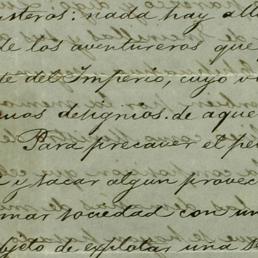 nada hay
de los aventureros que
te del Imperio, cuyo
designios. de aque
Para precaver el pe
y sacar algun provec
mar sociedad con un
objeto de explotar una